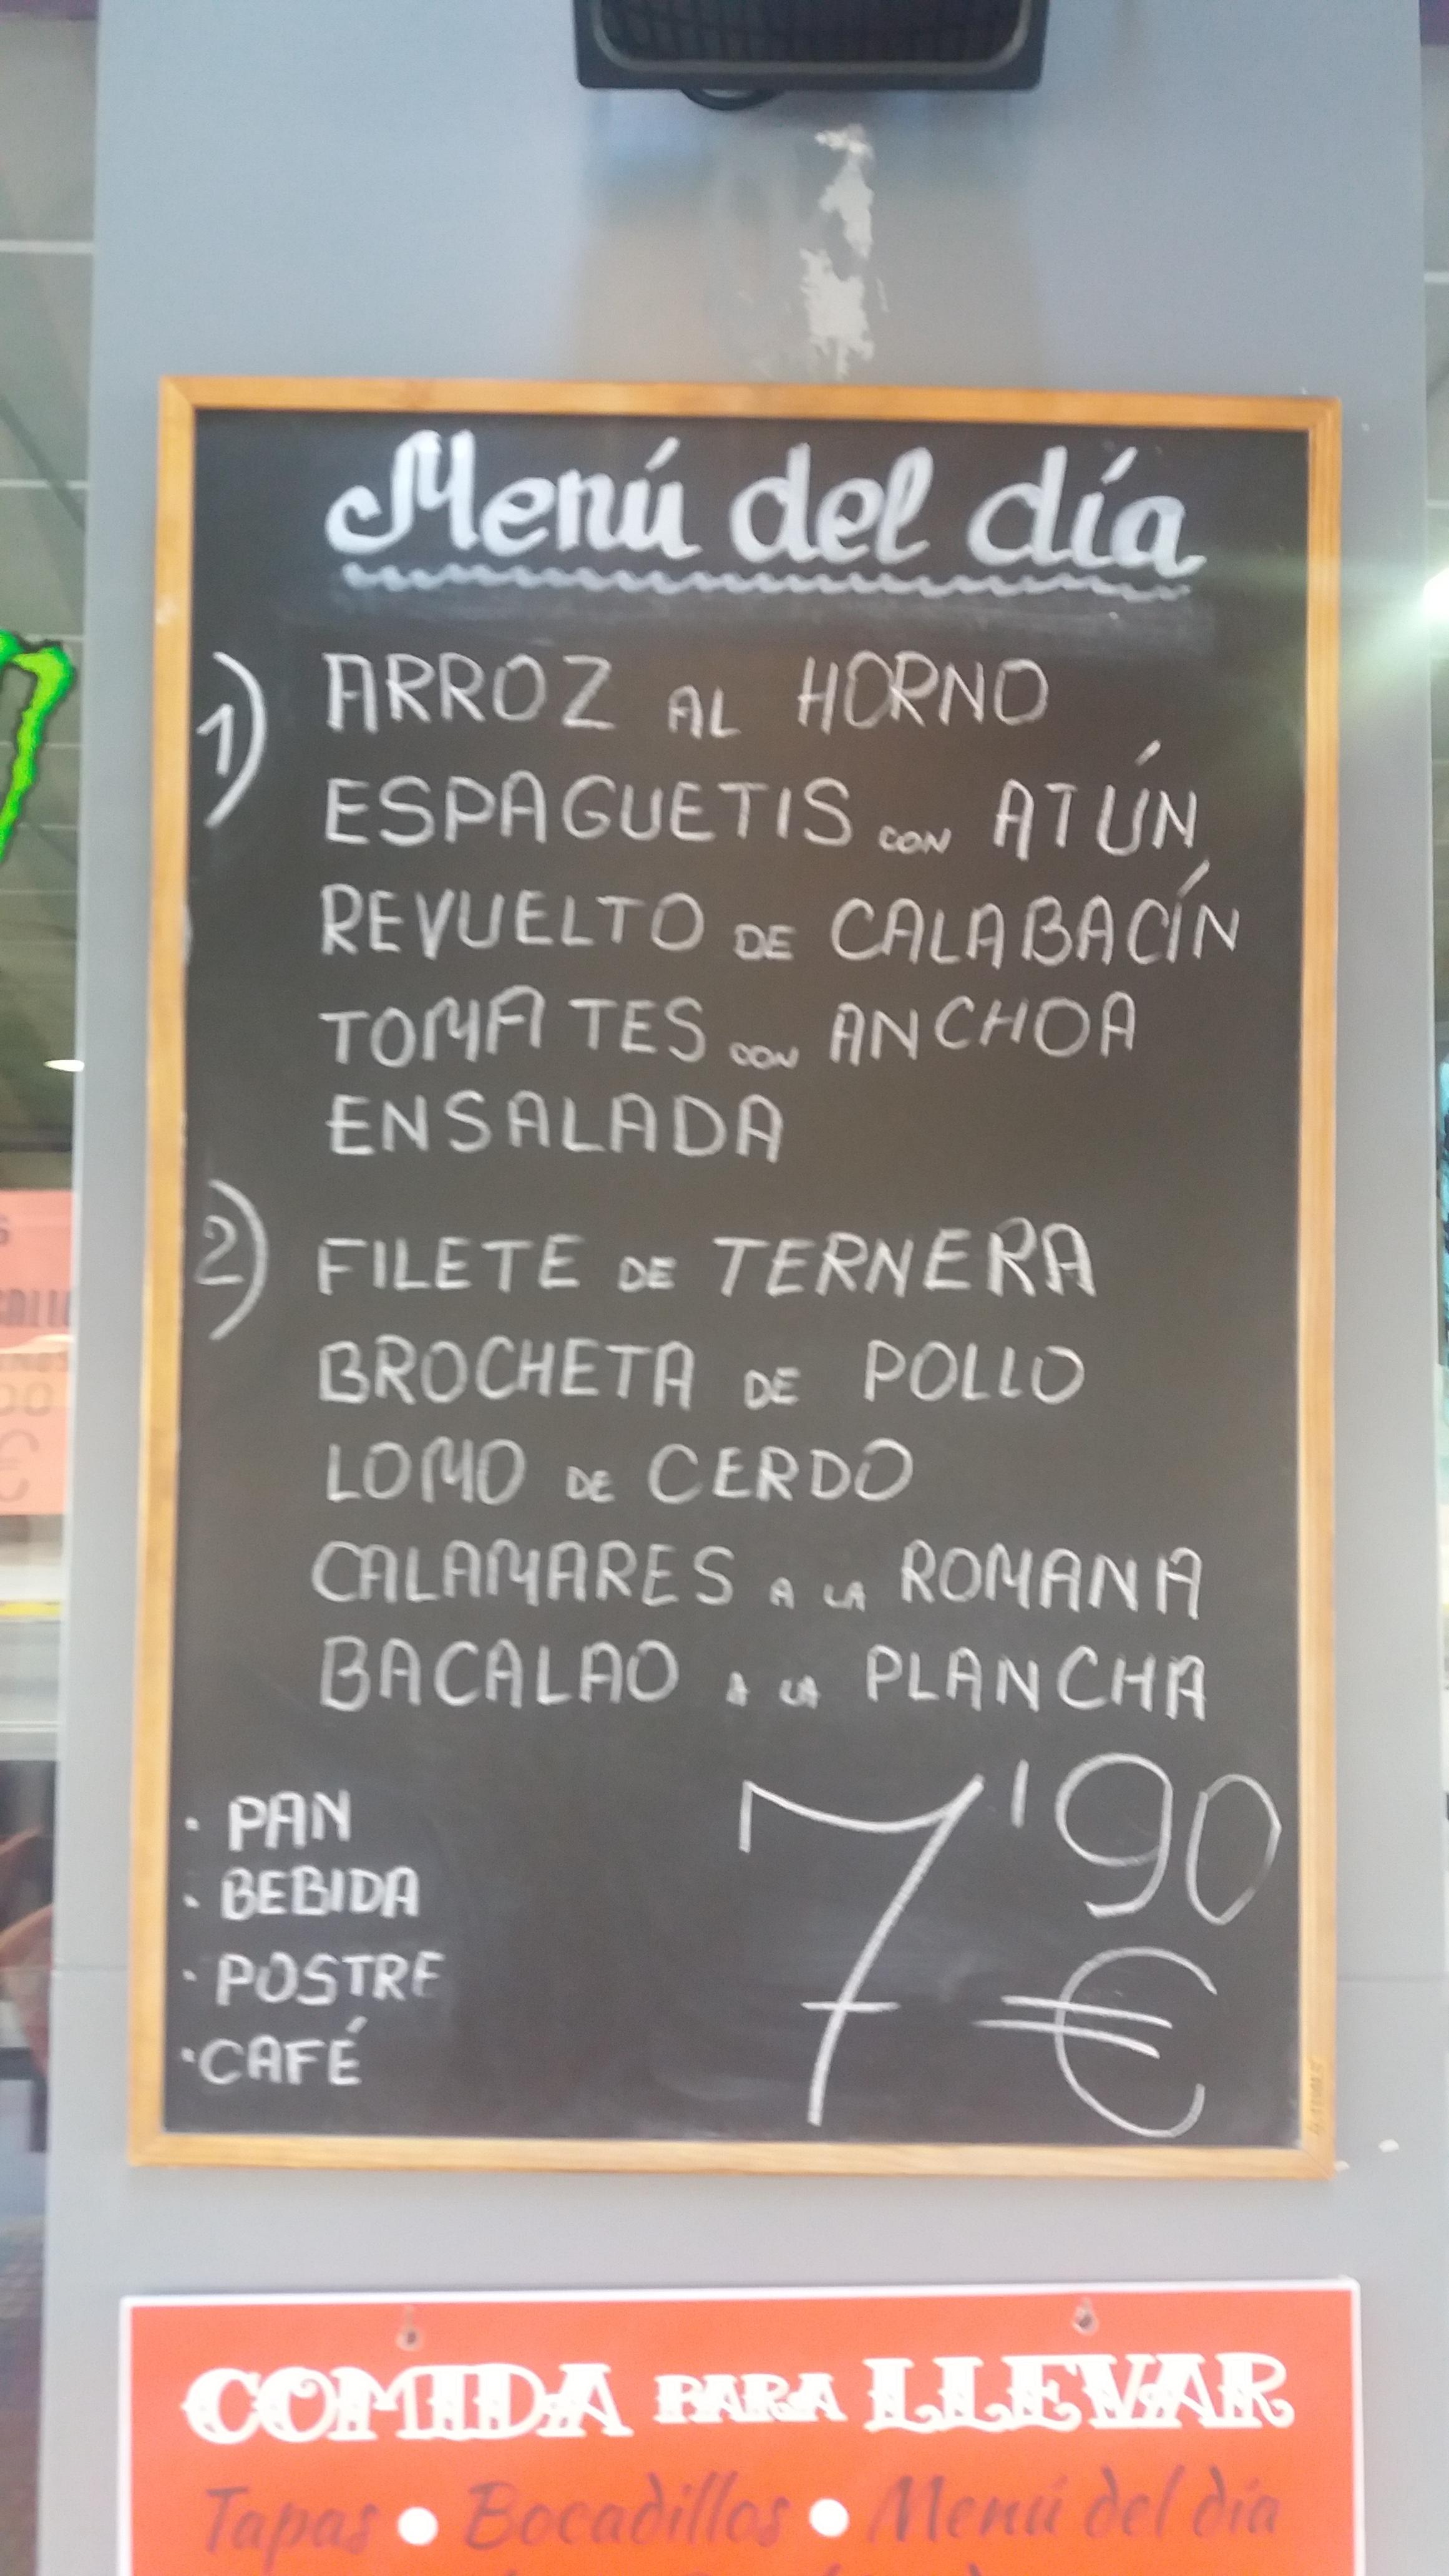 Menú del día
1) ARROZ AL HORNO
ESPAGUETIS CON ATÚN
REVUELTO DE CALABACÍN
TOMATES CON ANCHOA
ENSALADA
2) FILETE DE TERNERA
BROCHETA DE POLLO
LOMO DE CERDO
CALAMARES A LA ROMANA
BACALAO A LA PLANCHA
· PAN
· BEBIDA
· POSTRE
· CAFÉ
7'90
€
COMIDA PARA LLEVAR
Tapas • Bocadillos • Menú del día